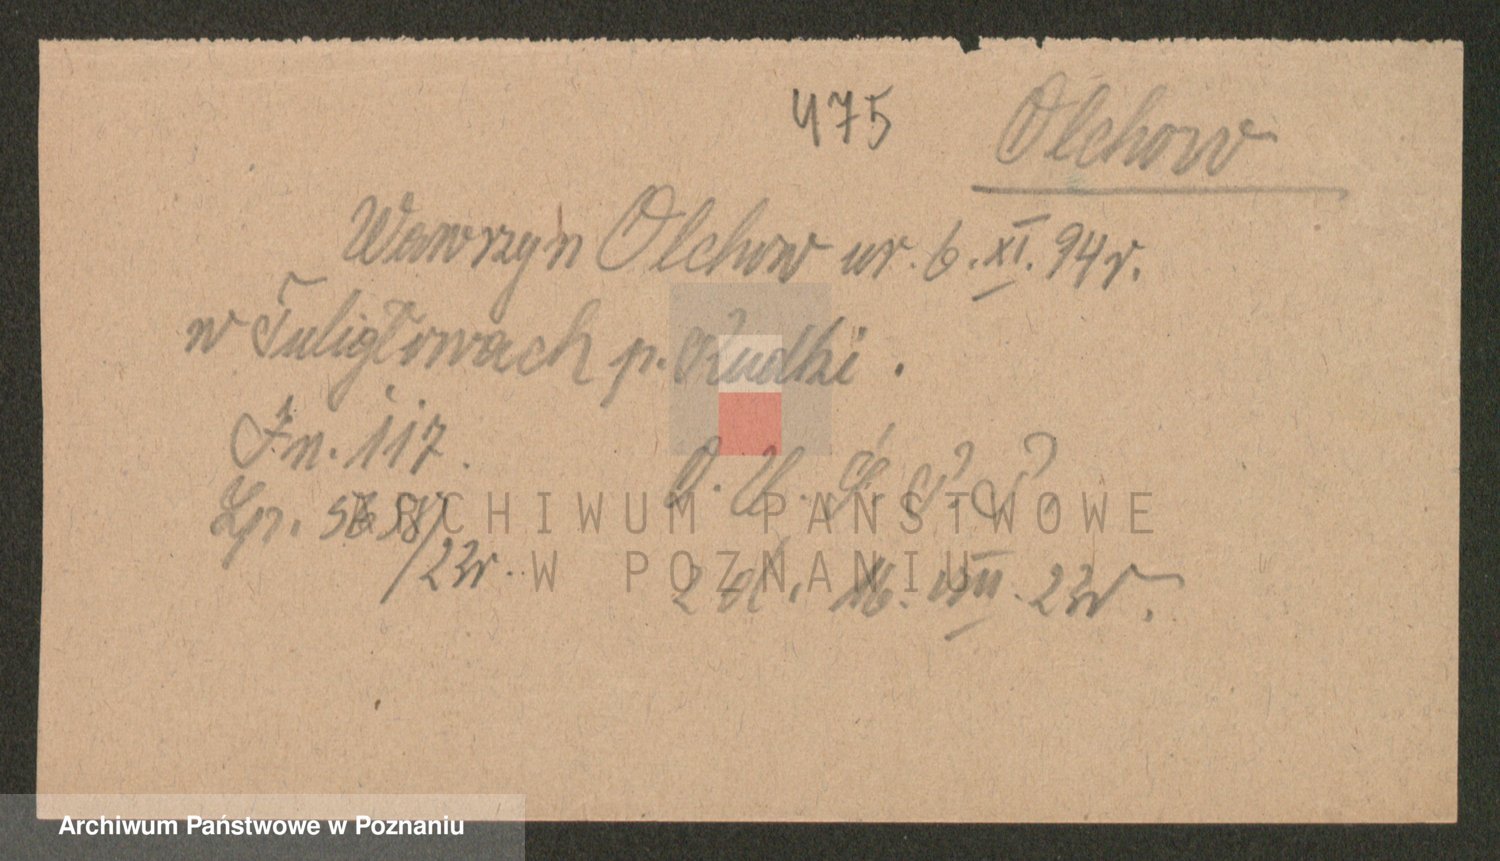 475
Olchow
Wawrzyn Olchow ur. 6.XI.94r.
w Tuligłowach p. Rudki.
In. 117.
Lp. 58/
/23r.
23r.
ARCHIWUM PAŃSTWOWE
W POZNANIU
Archiwum Państwowe w Poznaniu